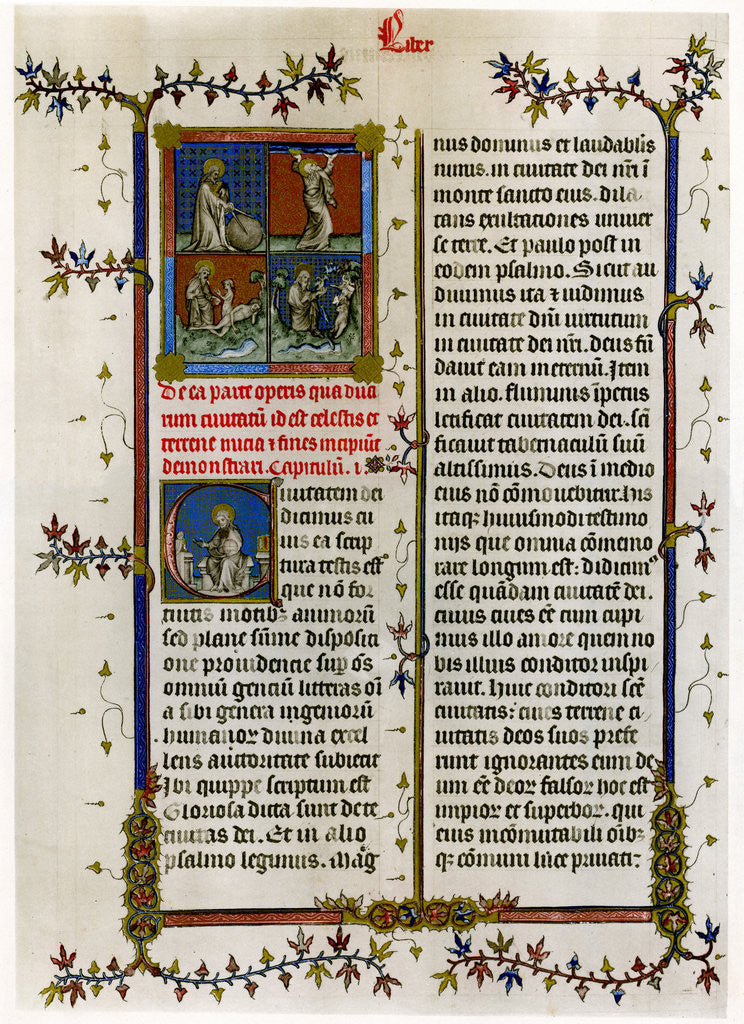 Liber
De ea parte operis qua duа
rum ciuitatū id est celestis et
terrene inicia ⁊ fines incipiūt
demonstrari. Capitulū. i.
Ciuitatem dei
dicimus cu
ius ea scrip
tura testis est
que nō for
tuitis motibꝫ animorū
sed plane sūme dispositi
one prouidencie suꝑ oı̄s
omniū genciū litteras oı̄
a sibi genera ingeniorū
humanoꝝ diuina excel
lens auctoritate subiecit
Ibi quippe scriptum est
Gloriosa dicta sunt de te
ciuitas dei. Et in alio
psalmo legimus. Mag
nus dominus et laudabilis
nimis. in ciuitate dei nr̄i ī
monte sancto eius. dila
tans exultationes uniuer
se terre. Et paulo post in
eodem psalmo. Sicut au
diuimus ita ⁊ uidimus
in ciuitate dn̄i uirtutum
in ciuitate dei nr̄i. deus fū
dauit eam in eternū. Item
in alio. fluminis īpetus
letificat ciuitatem dei. sc̄i
ficauit tabernaculū suū
altissimus. Deus ī medio
eius nō cōmouebitur. his
itaqꝫ huiusmodi testimo
niis que omnia cōmemo
rare longum est: didicimꝰ
esse quādam ciuitatē dei.
cuius ciues eē cum cupi
mus illo amore quem no
bis illius conditor inspi
rauit. Huic conditori sc̄e
ciuitatis: ciues terrene ci
uitatis deos suos prefe
runt ignorantes eum de
um eē deoꝝ falsoꝝ hoc est
impioꝝ et superboꝝ. qui
eius incōmutabili oı̄bꝫ
qꝫ cōmuni luce priuati: